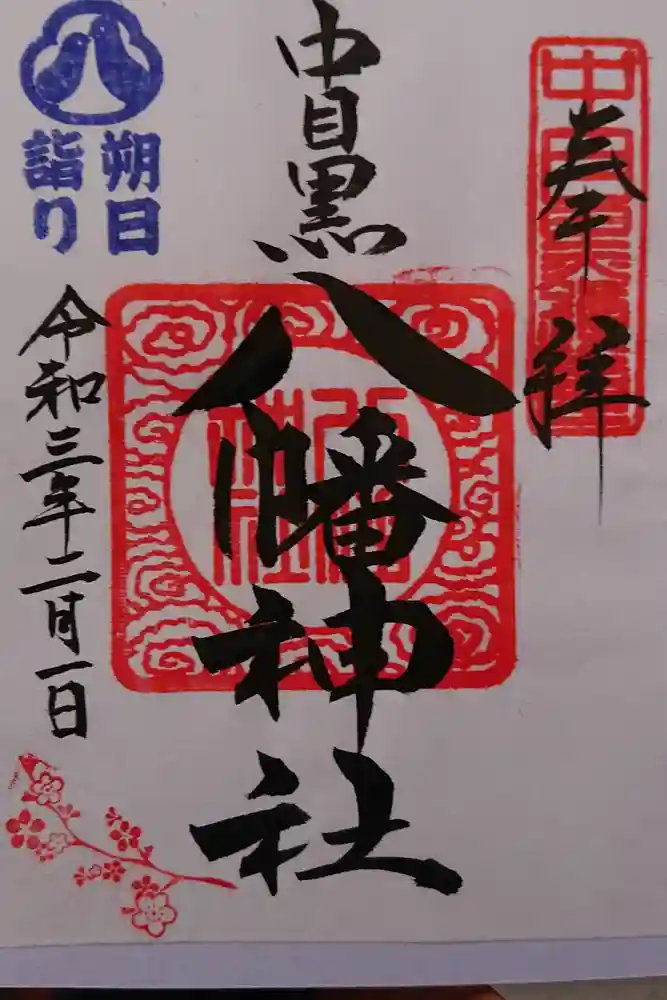 奉拝
中目黒
八幡神社
八幡
神社
朔日
詣り
令和三年二月一日